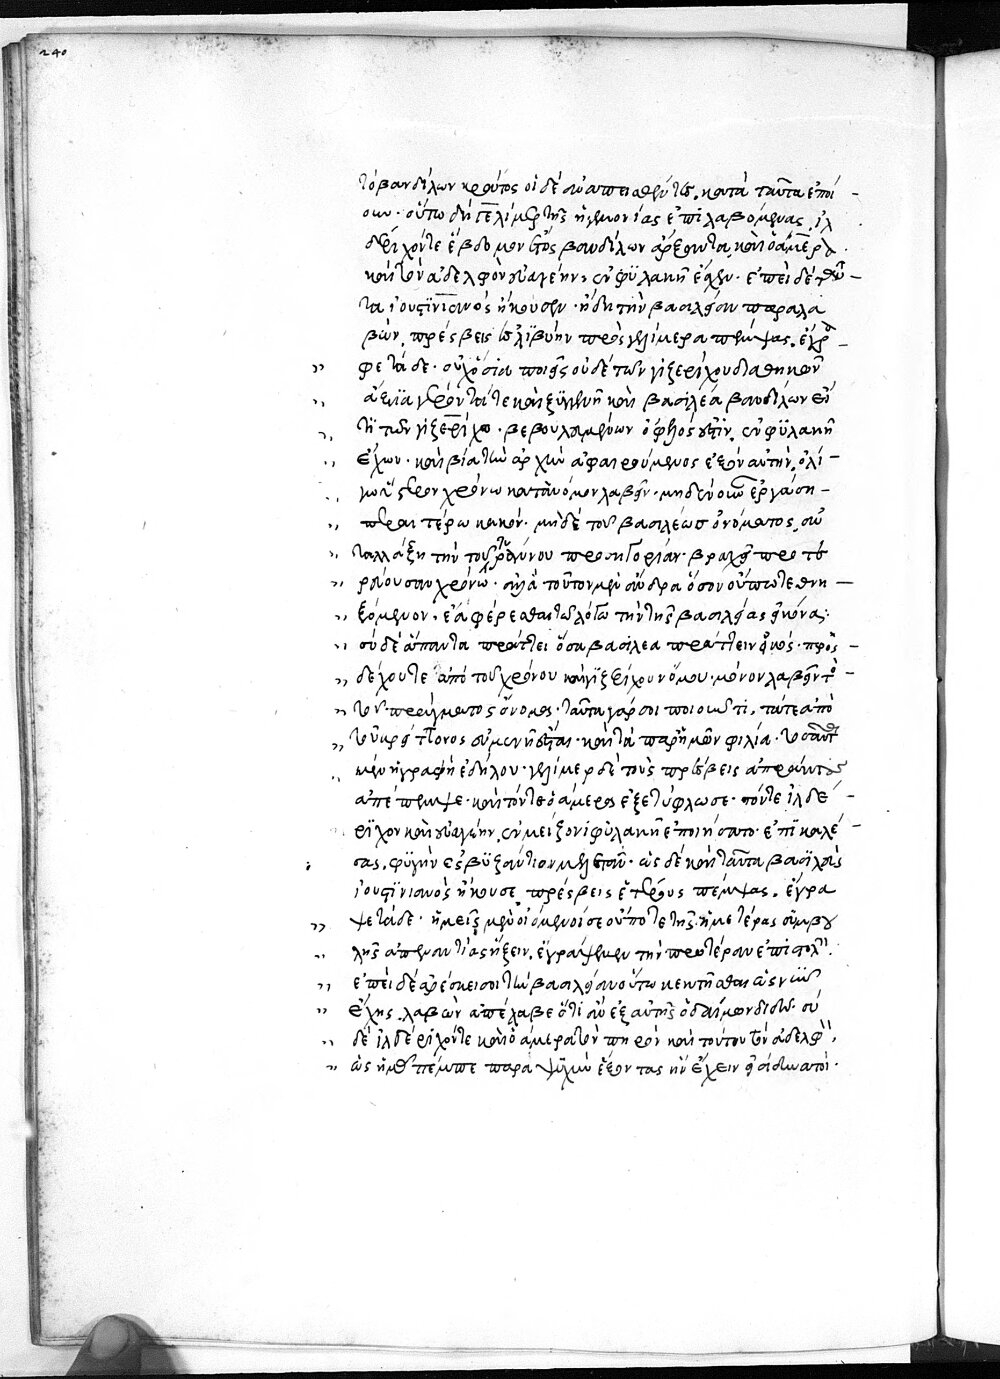 240
τὸ βανδίλων κράτος οἱ δὲ ἀναπεισθέντες, κατὰ ταῦτα ἐποί
ουν· οὕτω δὴ γελίμερ τῆς ἡγεμονίας ἐπιλαβόμενος, ἰλ
δέριχόν τε ἕβδομον ἔτος βανδίλων ἄρξαντα, καὶ ὁάμερα
καὶ τὸν ἀδελφὸν εὐαγέην, ἐν φυλακῇ ἔσχεν· ἐπεὶ δὲ ταῦ
τα ἰουστινιανὸς ἤκουσεν· ἤδη τὴν βασιλείαν παραλα
βὼν, πρέσβεις ἐς λιβύην πρὸς γελίμερα πέμψας, ἔγρα
φε τάδε· οὐχ ὅσια ποιεῖς οὐδὲ τῶν γιζερίχου διαθηκῶν
ἄξια γέροντά τε καὶ ξυγγενῆ καὶ βασιλέα βανδίλων εἴ
τι τῶν γιζερίχῳ βεβουλευμένων ὄφελός ἐστιν, ἐν φυλακῇ
ἔχων· καὶ βίᾳ τὴν ἀρχὴν ἀφαιρούμενος ἐξὸν αὐτὴν, ὀλί
γῳ ὕστερον χρόνῳ κατὰ νόμον λαβεῖν· μηδὲν οὖν ἐργάσῃ
περαιτέρω κακόν· μηδὲ τοῦ βασιλέως ὀνόματος, ἀν
ταλλάξῃ τὴν τοῦ τυράννου προσηγορίαν· βραχεῖ προτε
ραίουσαν χρόνῳ· ἀλλὰ τοῦτον μὲν ἄνδρα ὅσον οὔπω τεθνη
ξόμενον, ἔα φέρεσθαι τῷ λόγῳ τὴν τῆς βασιλείας εἰκόνα·
σὺ δὲ ἅπαντα πράττε ὅσα βασιλέα πράττειν εἰκός· προς
δέχου τε ἀπὸ τοῦ χρόνου καὶ γιζερίχου νόμου· μόνον λαβεῖν τὸ
τοῦ πράγματος ὄνομα· ταῦτα γάρ σοι ποιοῦντι, τά τε ἀπὸ
τοῦ κρείττονος εὐμενῆ ἔσται· καὶ τὰ παρ' ἡμῶν φίλια· τοσαῦτα
μὲν ἡ γραφὴ ἐδήλου· γελίμερ δὲ τοὺς πρέσβεις ἀπράκτους
ἀπέπεμψε· καὶ τόν τε ὁάμερα ἐξετύφλωσε· τόν τε ἰλδέ
ριχον καὶ εὐαγέην, ἐν μείζονι φυλακῇ ἐποιήσατο· ἐπικαλέ
σας, φυγὴν ἐς βυζάντιον μελετᾶν· ὡς δὲ καὶ ταῦτα βασιλεὺς
ἰουστινιανὸς ἤκουσε, πρέσβεις ἑτέρους πέμψας, ἔγρα
ψε τάδε· ἡμεῖς μὲν οἰόμενοί σε οὔποτε τῆς ἡμετέρας συμβου
λῆς ἀπεναντίας ἥξειν, ἐγράψαμεν τὴν προτέραν ἐπιστολήν·
ἐπεὶ δὲ ἀρέσκει σοι τὴν βασιλείαν οὕτω κεκτῆσθαι ὡς νῦν
ἔχεις, λαβὼν ἀπέλαβε ὅτι ἂν ἐξ αὐτῆς ὁ δαίμων διδῷ· σὺ
δὲ ἰλδέριχόν τε καὶ ὁάμερα τὸν πηρὸν καὶ τούτου τὸν ἀδελφὸν,
ὡς ἡμᾶς πέμπε παραψυχὴν ἕξοντας ἣν ἔχειν εἰσὶ δυνατοί·